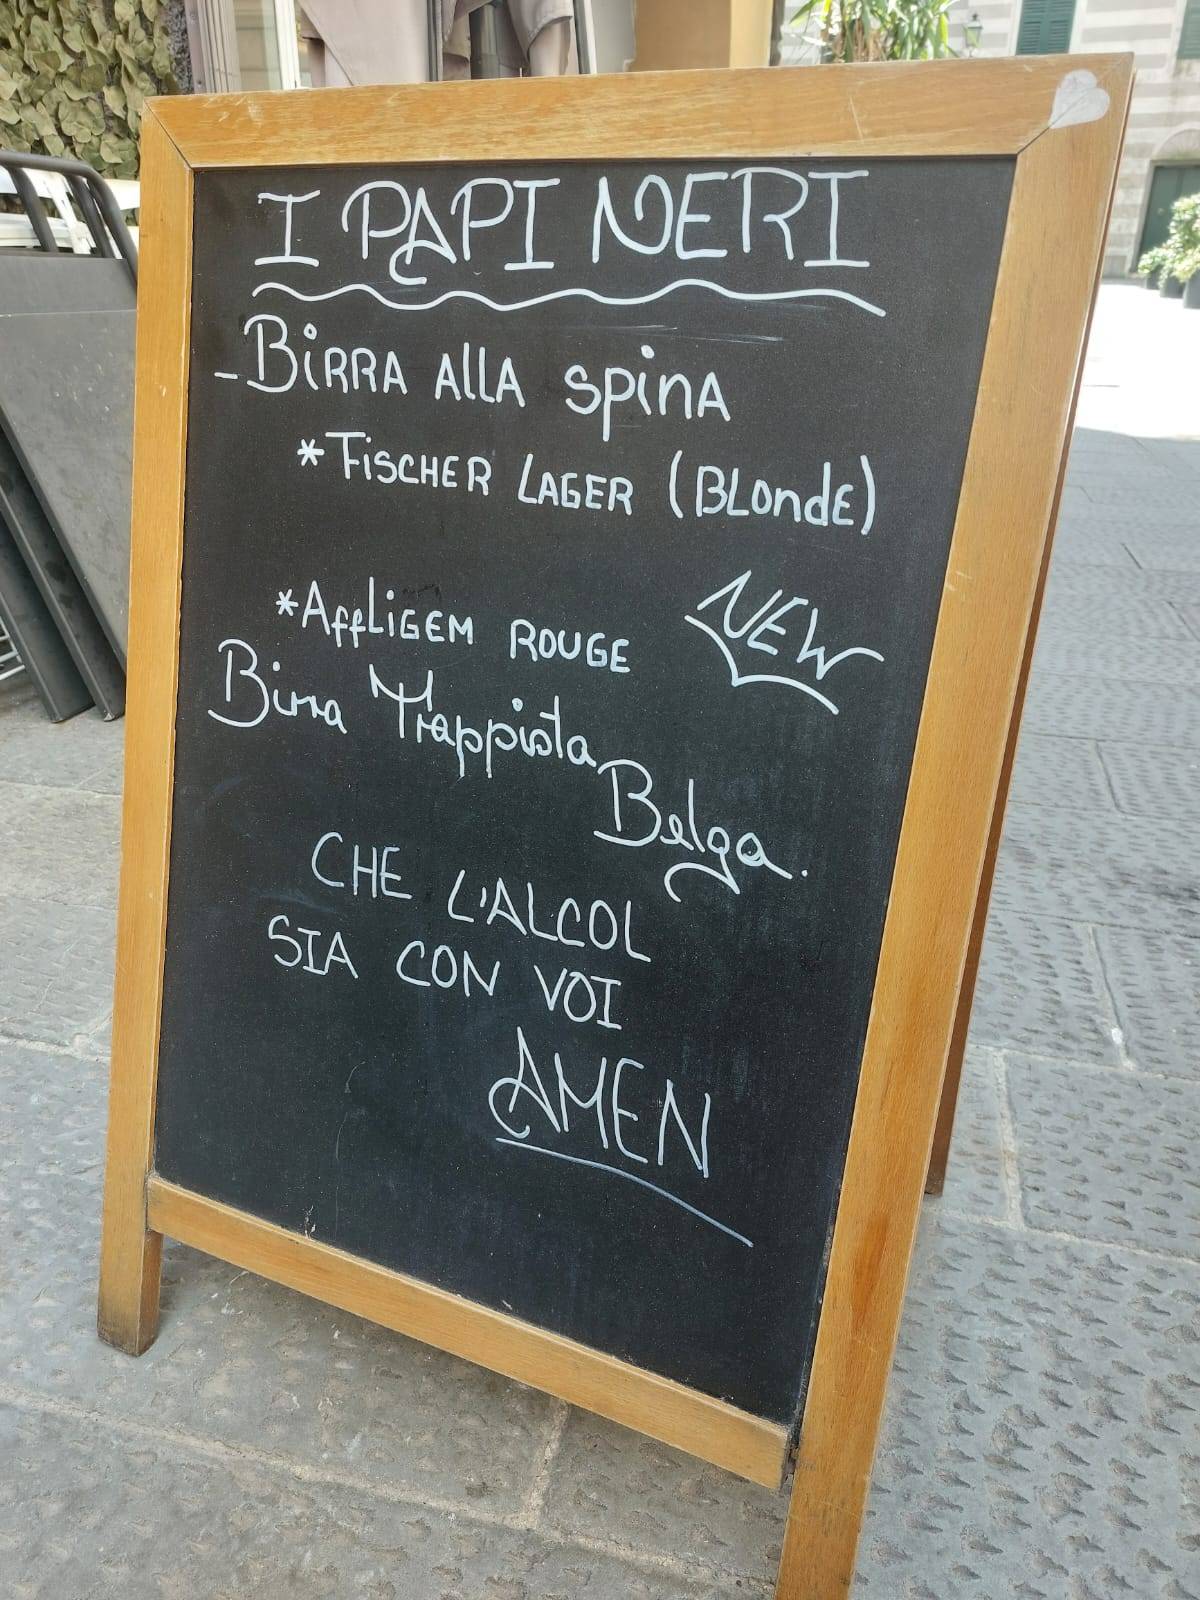 I PAPI NERI
- BIRRA ALLA SPINA
* FISCHER LAGER (BLONDE)
* AFFLIGEM ROUGE NEW
Birra Trappista
Belga.
CHE L'ALCOL
SIA CON VOI
AMEN